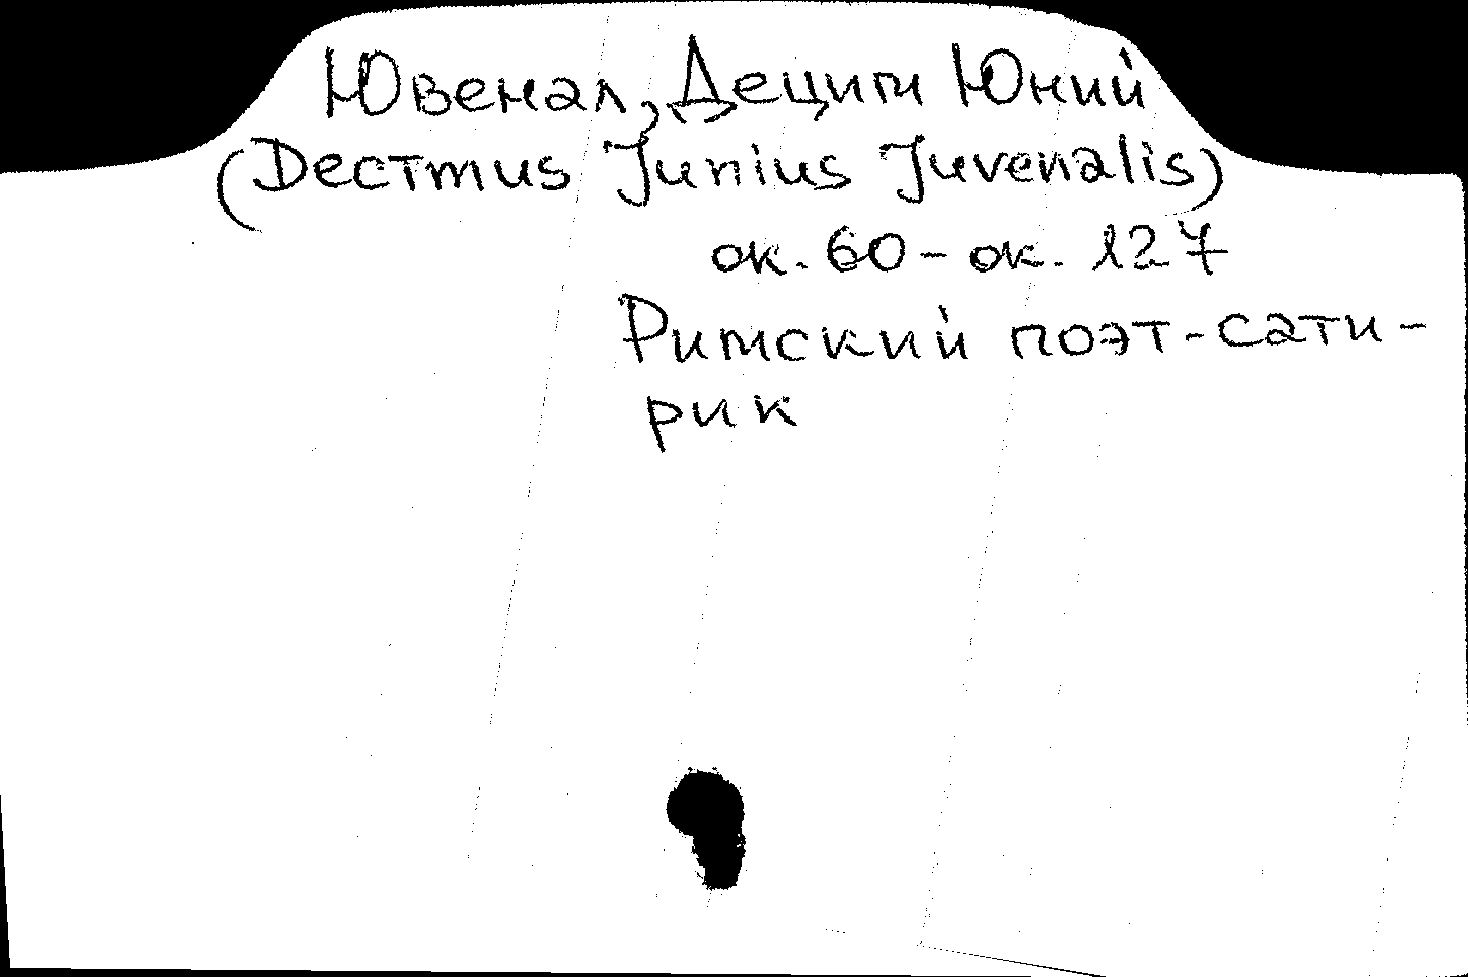 Ювенал, Децим Юний
(Decimus Junius Juvenalis)
ок. 60 - ок. 127
Римский поэт-сати-
рик